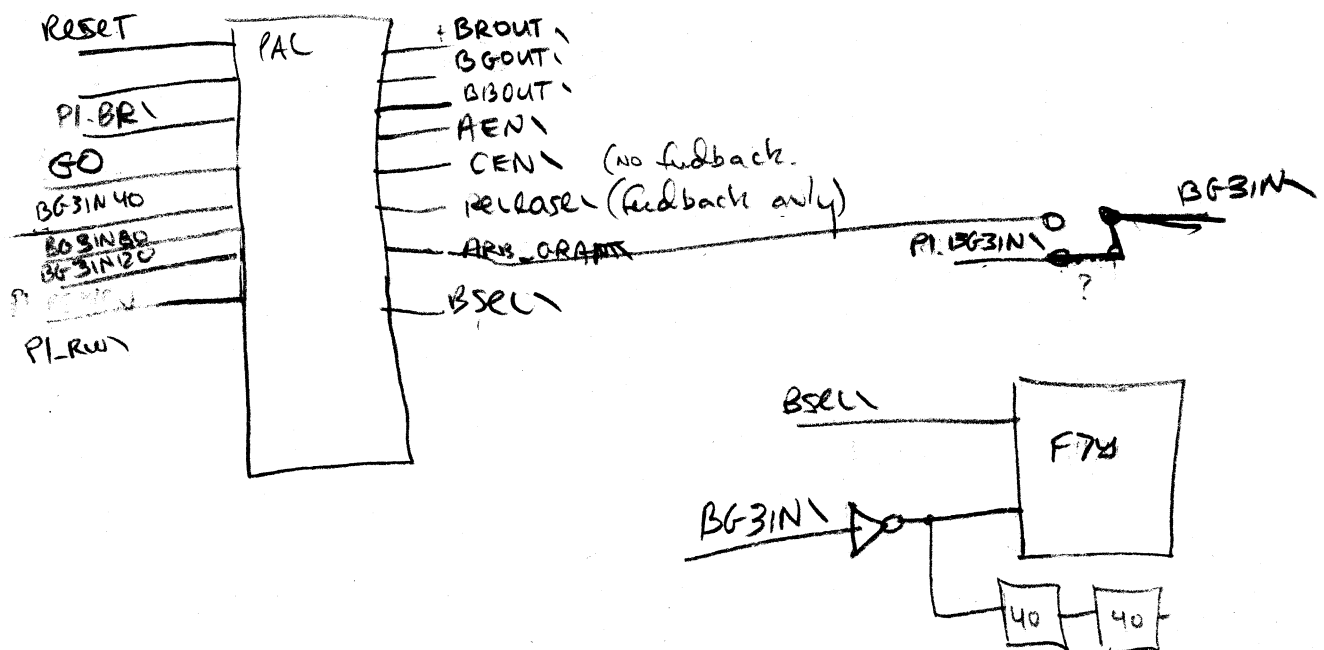 Reset
PAL
P1-BR\
GO
BG3IN40
BG3IN80
BG3IN120
P1_RW\
BROUT\
BGOUT\
BBOUT\
AEN\
CEN\ (NO feedback.
Release\ (feedback only)
BSEL\
P1-BG3IN\
BG3IN\
?
BSEL\
F74
BG3IN\
40
40